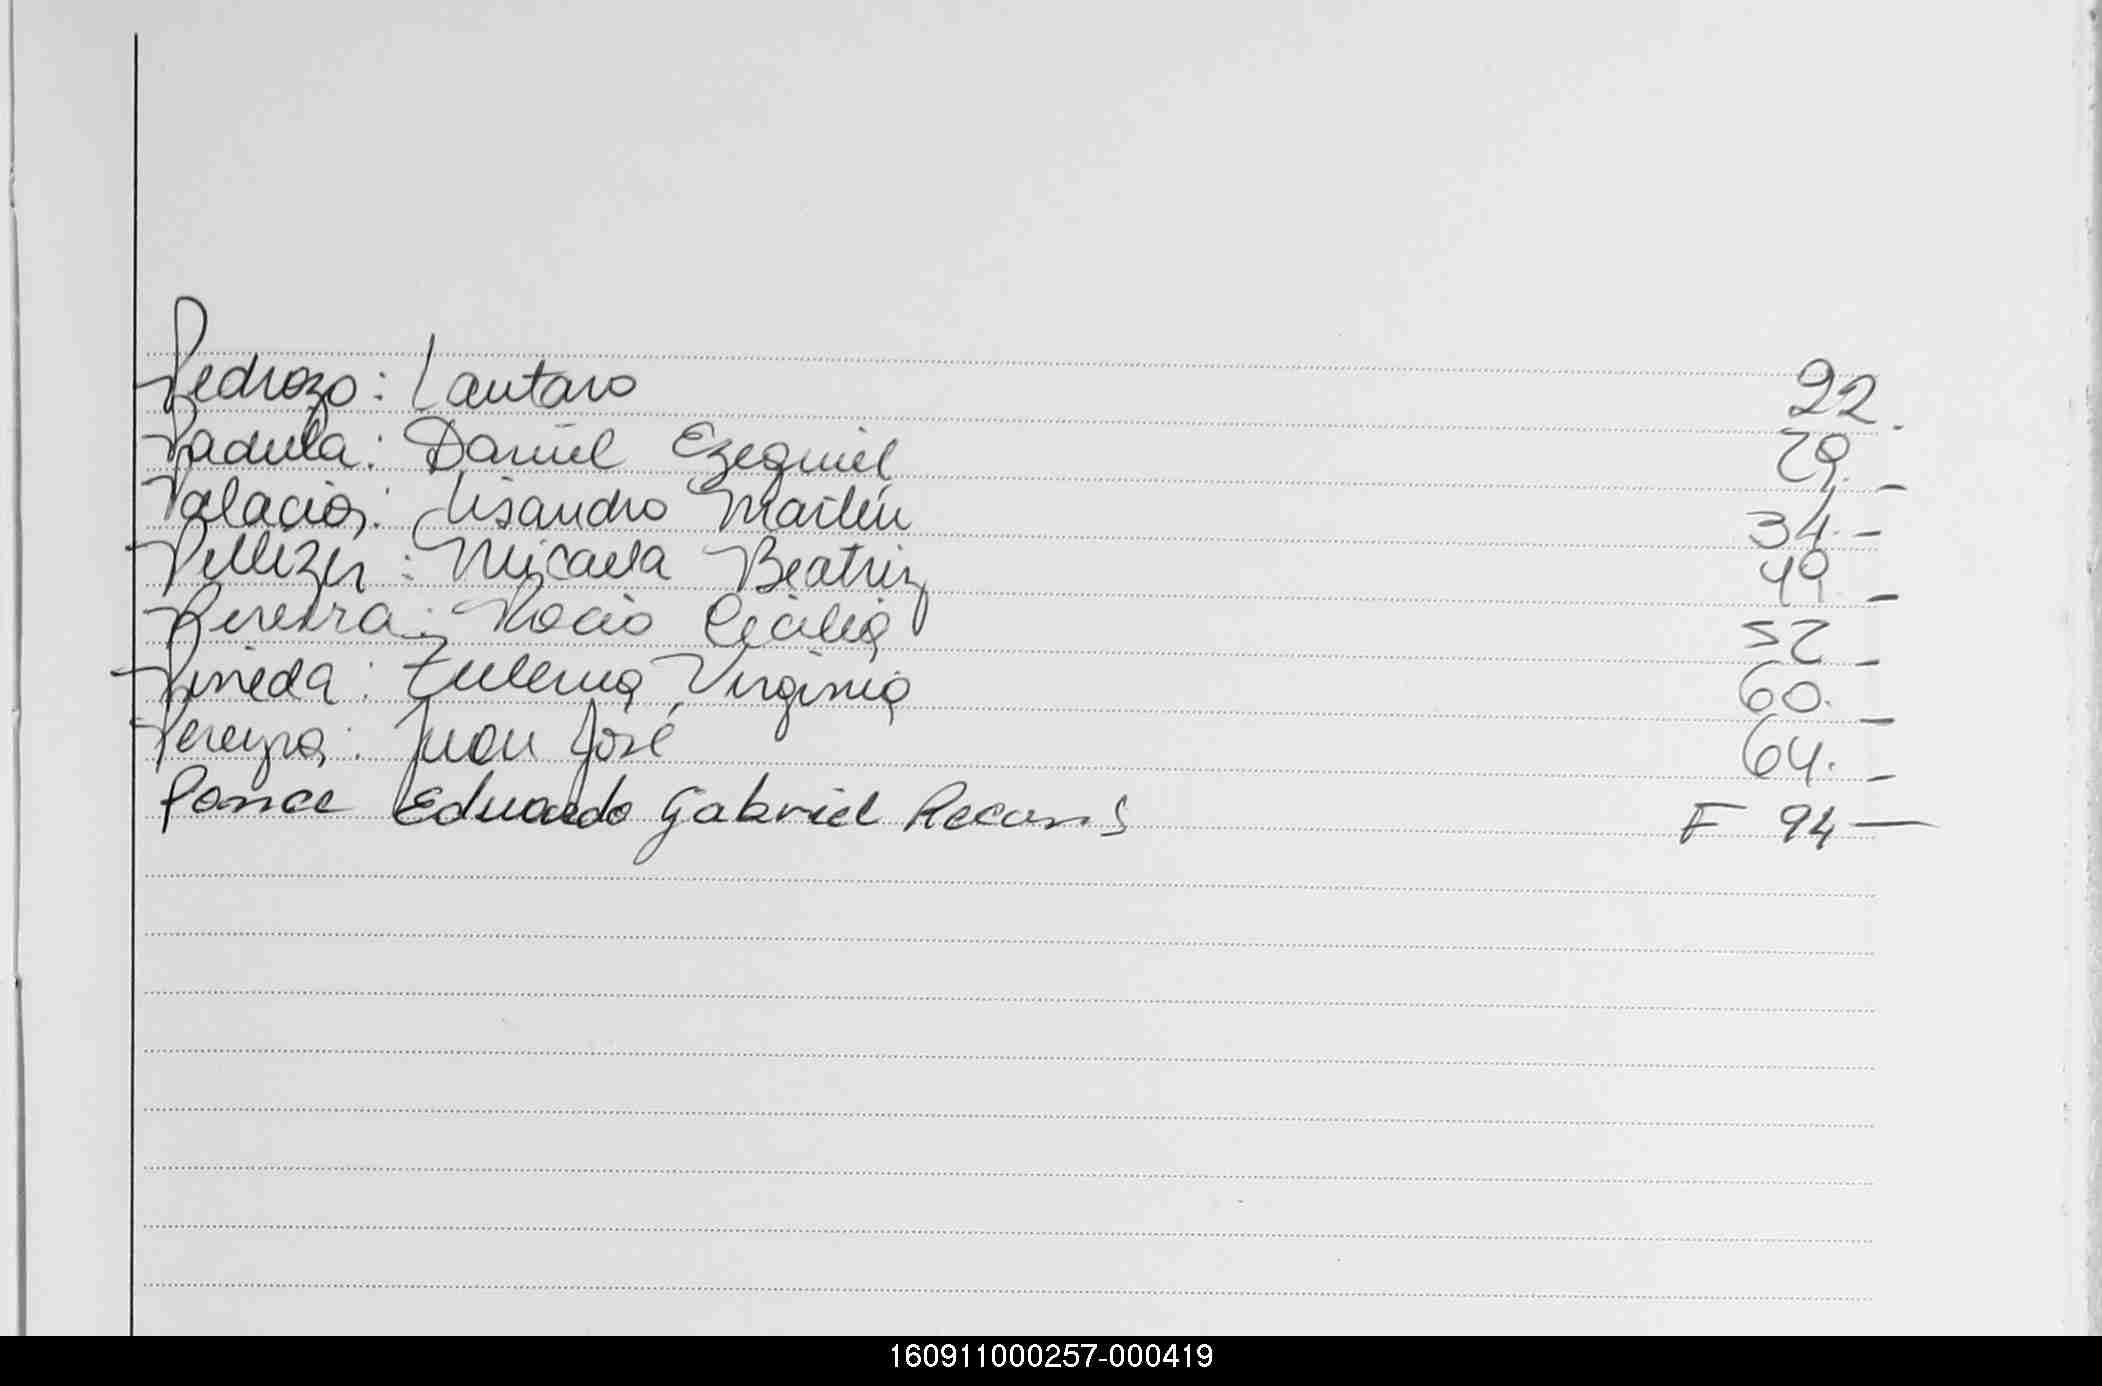 Pedrozo: Lautaro 22.
Padula: Daniel Ezequiel 29. -
Palacios: Lisandro Martín 34. -
Pellizer: Micaela Beatriz 49. -
Pereira: Rocio Cecilia 52 -
Pineda: Zulema Virginia 60. -
Pereyra: Juan José 64. -
Ponce Eduardo Gabriel F 94 —
160911000257-000419